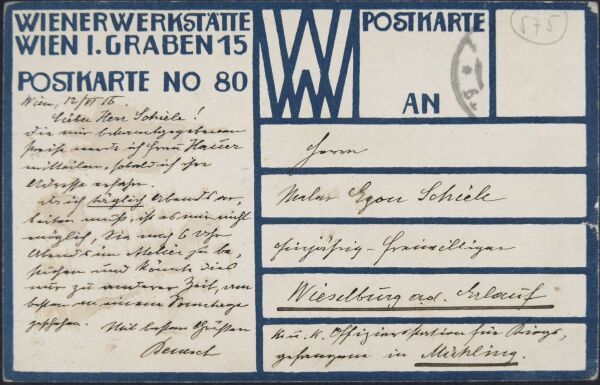 WIENER WERKSTÄTTE
WIEN I. GRABEN 15
POSTKARTE NO 80
Wien, 12/VI 16.
Lieber Herr Schiele!
Die mir bekanntgegebenen
Preise werde ich Frau Hauer
mitteilen, sobald ich ihre
Adresse erfahre.
Da ich täglich Abends ar-
beiten muß, ist es mir nicht
möglich, Sie nach 6 Uhr
Abends im Atelier zu be-
suchen und könnte dies
nur zu anderer Zeit, am
besten an einem Sonntage
geschehen.
Mit besten Grüßen
Benesch
WW
POSTKARTE
AN
575
Herrn
Maler Egon Schiele
Einjährig-Freiwilliger
Wieselburg a.d. Erlauf
k. u. k. Offiziersstation für Kriegs-
gefangene in Mühling.